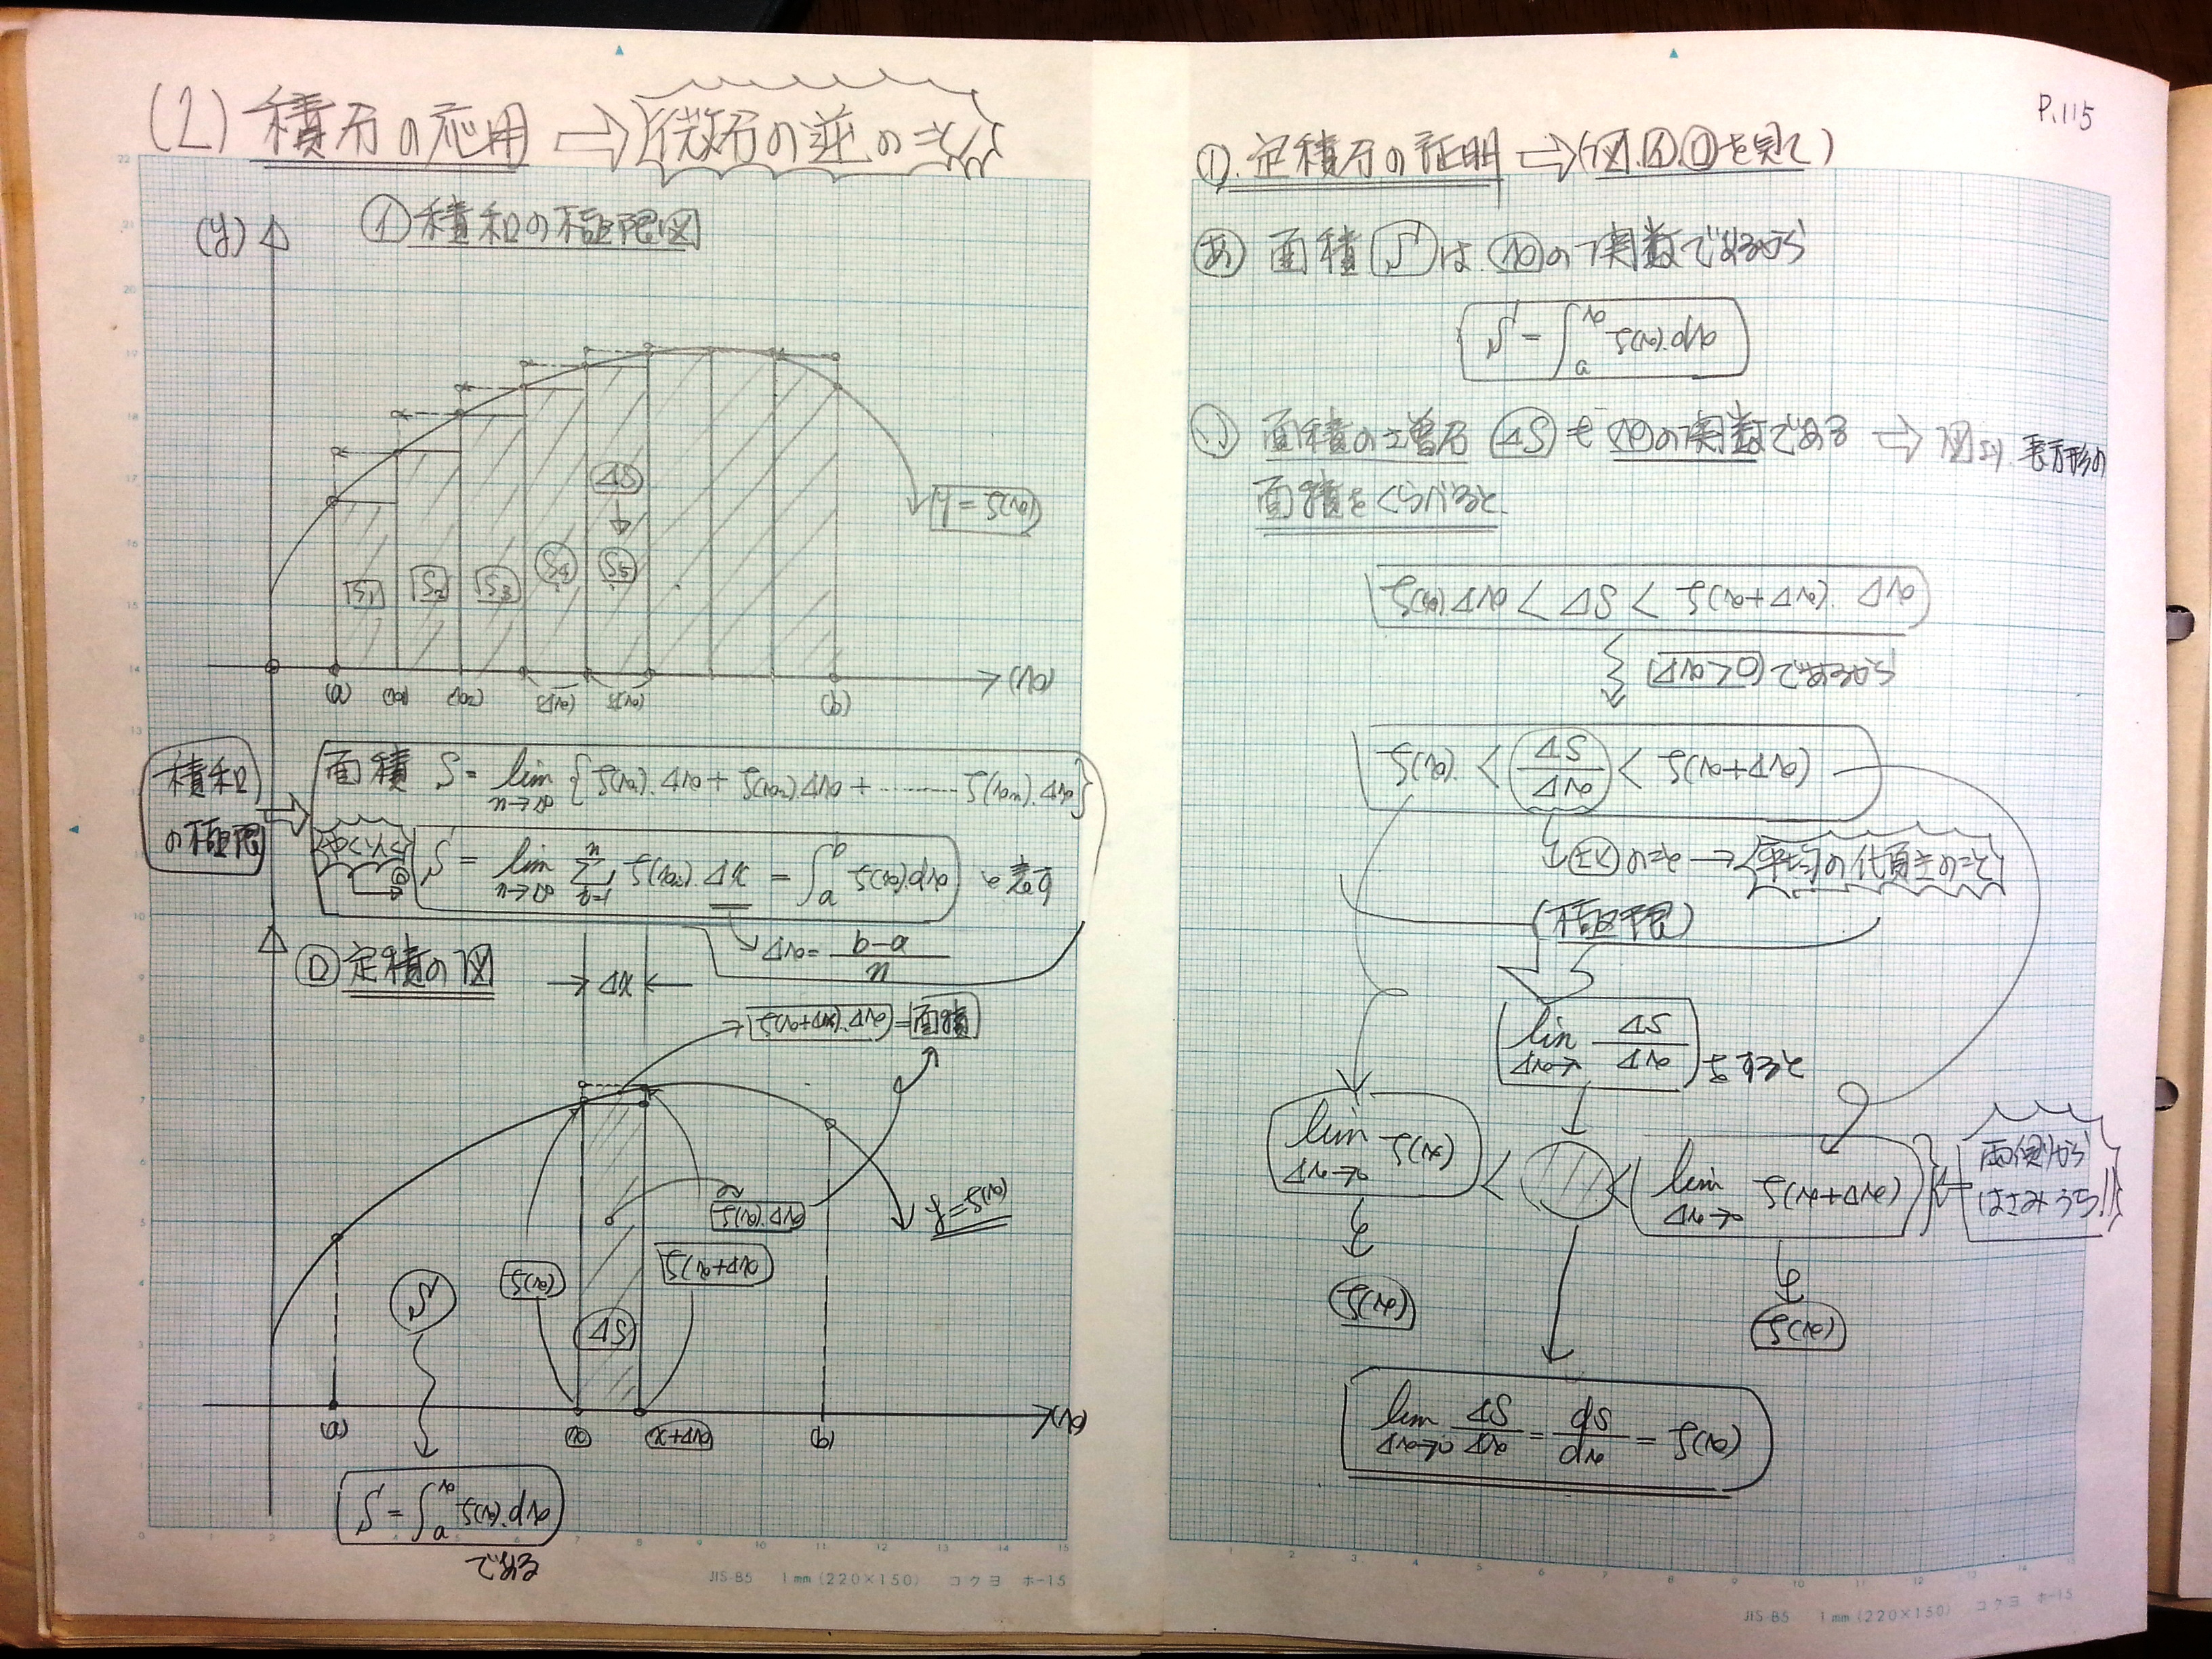 (2) 積分の応用 ⇒ 微分の逆のこと
(y)
㋑積和の極限図
ΔS
S1 S2 S3 S4 S5
y=f(x)
(a) (Δx) (Δx) (b) (x)
積和
の極限
面積 S=lim n→∞ {f(x1).Δx+f(x2).Δx+………f(xn).Δx}
S=lim n→∞ Σ f(xn).Δx=∫a b f(x).dx で表す
Δx=b-a/n
㋺定積の図
Δx
f(x+Δx).(Δx)=面積
f(x).Δx
y=f(x)
f(x)
f(x+Δx)
S
ΔS
(a) (x) (x+Δx) (b) (x)
S=∫a x f(x).dx
である
P.115
①.定積分の証明 ⇒(図.㋑.㋺を見て)
㋐ 面積 S は (x)の関数であるから
S=∫a x f(x).dx
㋑ 面積の増分 ΔS も Δxの関数である ⇒ 図より.長方形の
面積をくらべると.
f(x)Δx < ΔS < f(x+Δx).Δx
(0<Δx)であるから
f(x). < ΔS/Δx < f(x+Δx)
のこと→平均の代頁土のこと
(極限)
lim Δx→ ΔS/Δx とすると
lim Δx→0 f(x) < < lim Δx→0 f(x+Δx)
両側から
はさみうち!!
f(x)
f(x)
lim Δx→0 ΔS/Δx=dS/dx=f(x)
JIS-B5 1mm(220×150) コクヨ ホ-15
JIS-B5 1mm(220×150) コクヨ ホ-15